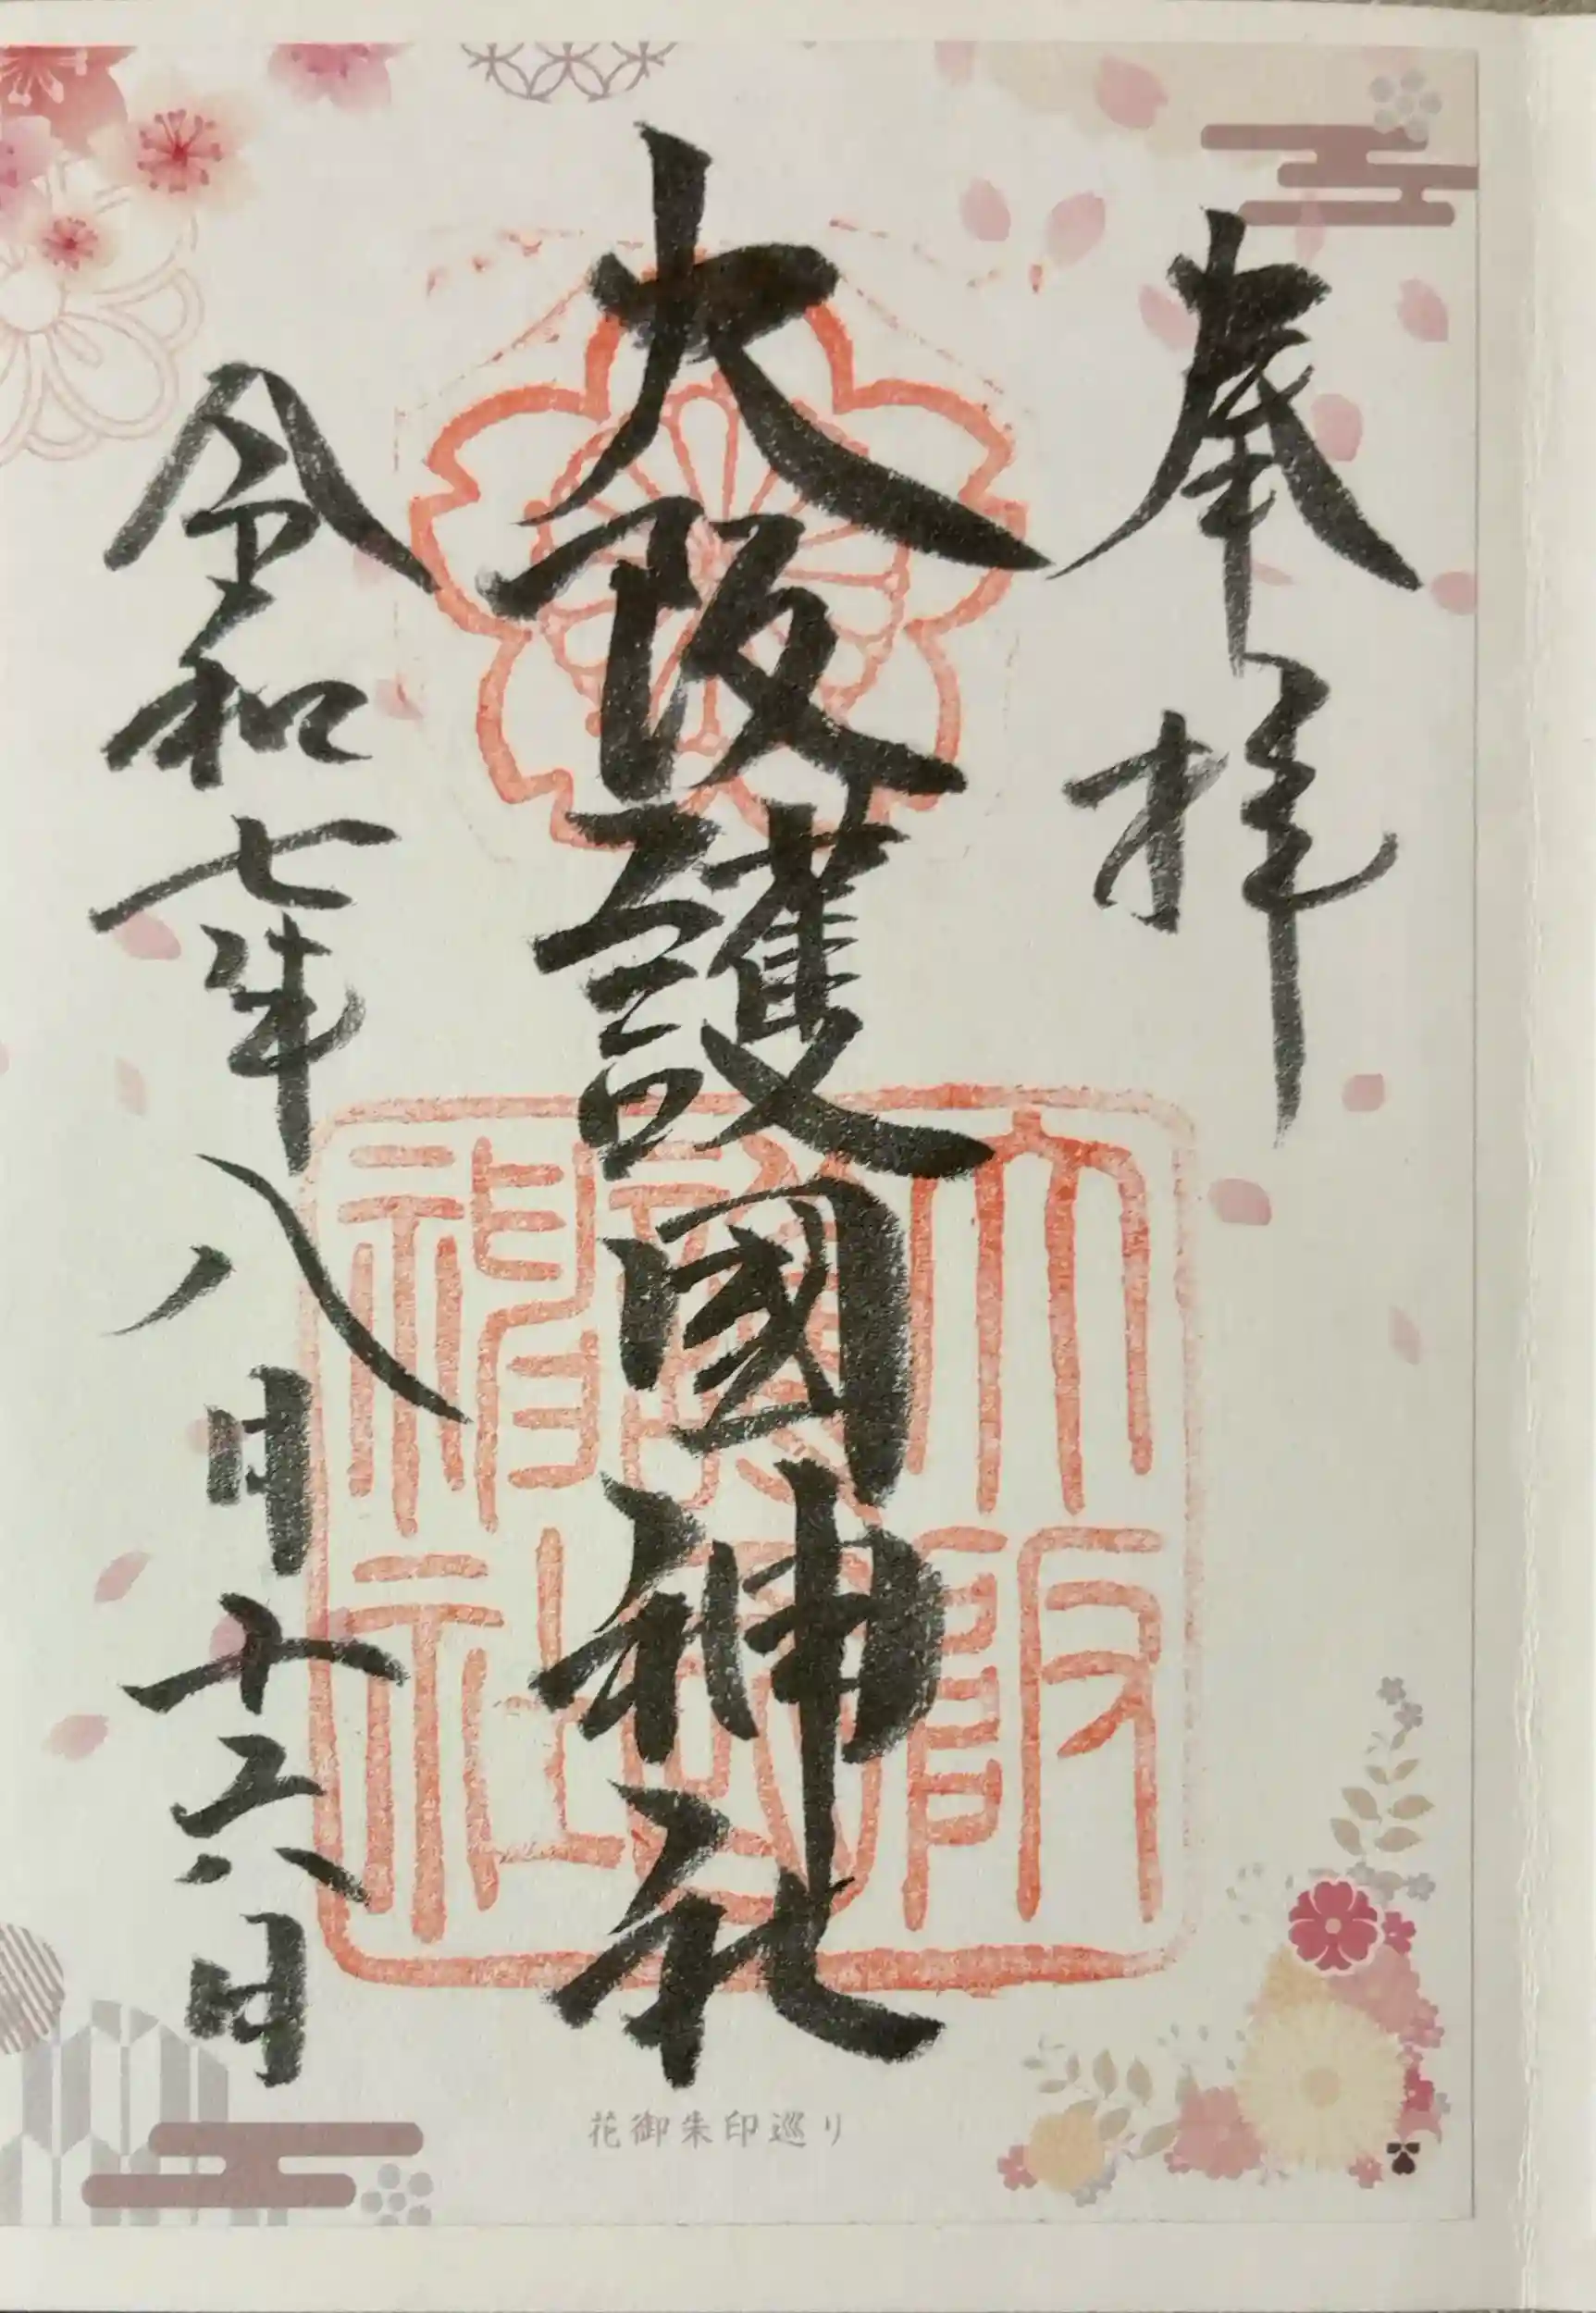 奉拝
大阪護國神社
令和七年八月十六日
大阪護國神社
花御朱印巡り